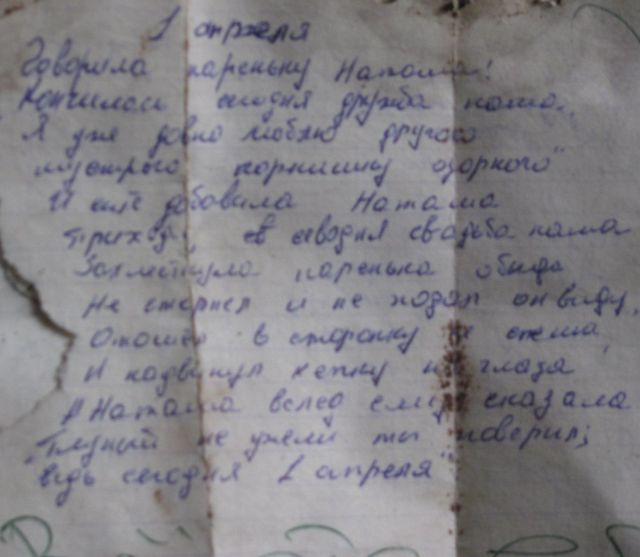 1 апреля
Говорила пареньку Наташа!
Кончилась сегодня дружба наша..
Я уже давно люблю другого
шустрого парнишку озорного"
И ещё добавила Наташа
Приходи, сегодня свадьба наша
Захлестнула паренька обида
Не стерпел и не подал он виду,
Отошел в сторонку не спеша,
И надвинул кепку на глаза
А Наташа вслед ему сказала
"Глупый не ужели ты поверил;
ведь сегодня 1 апреля"